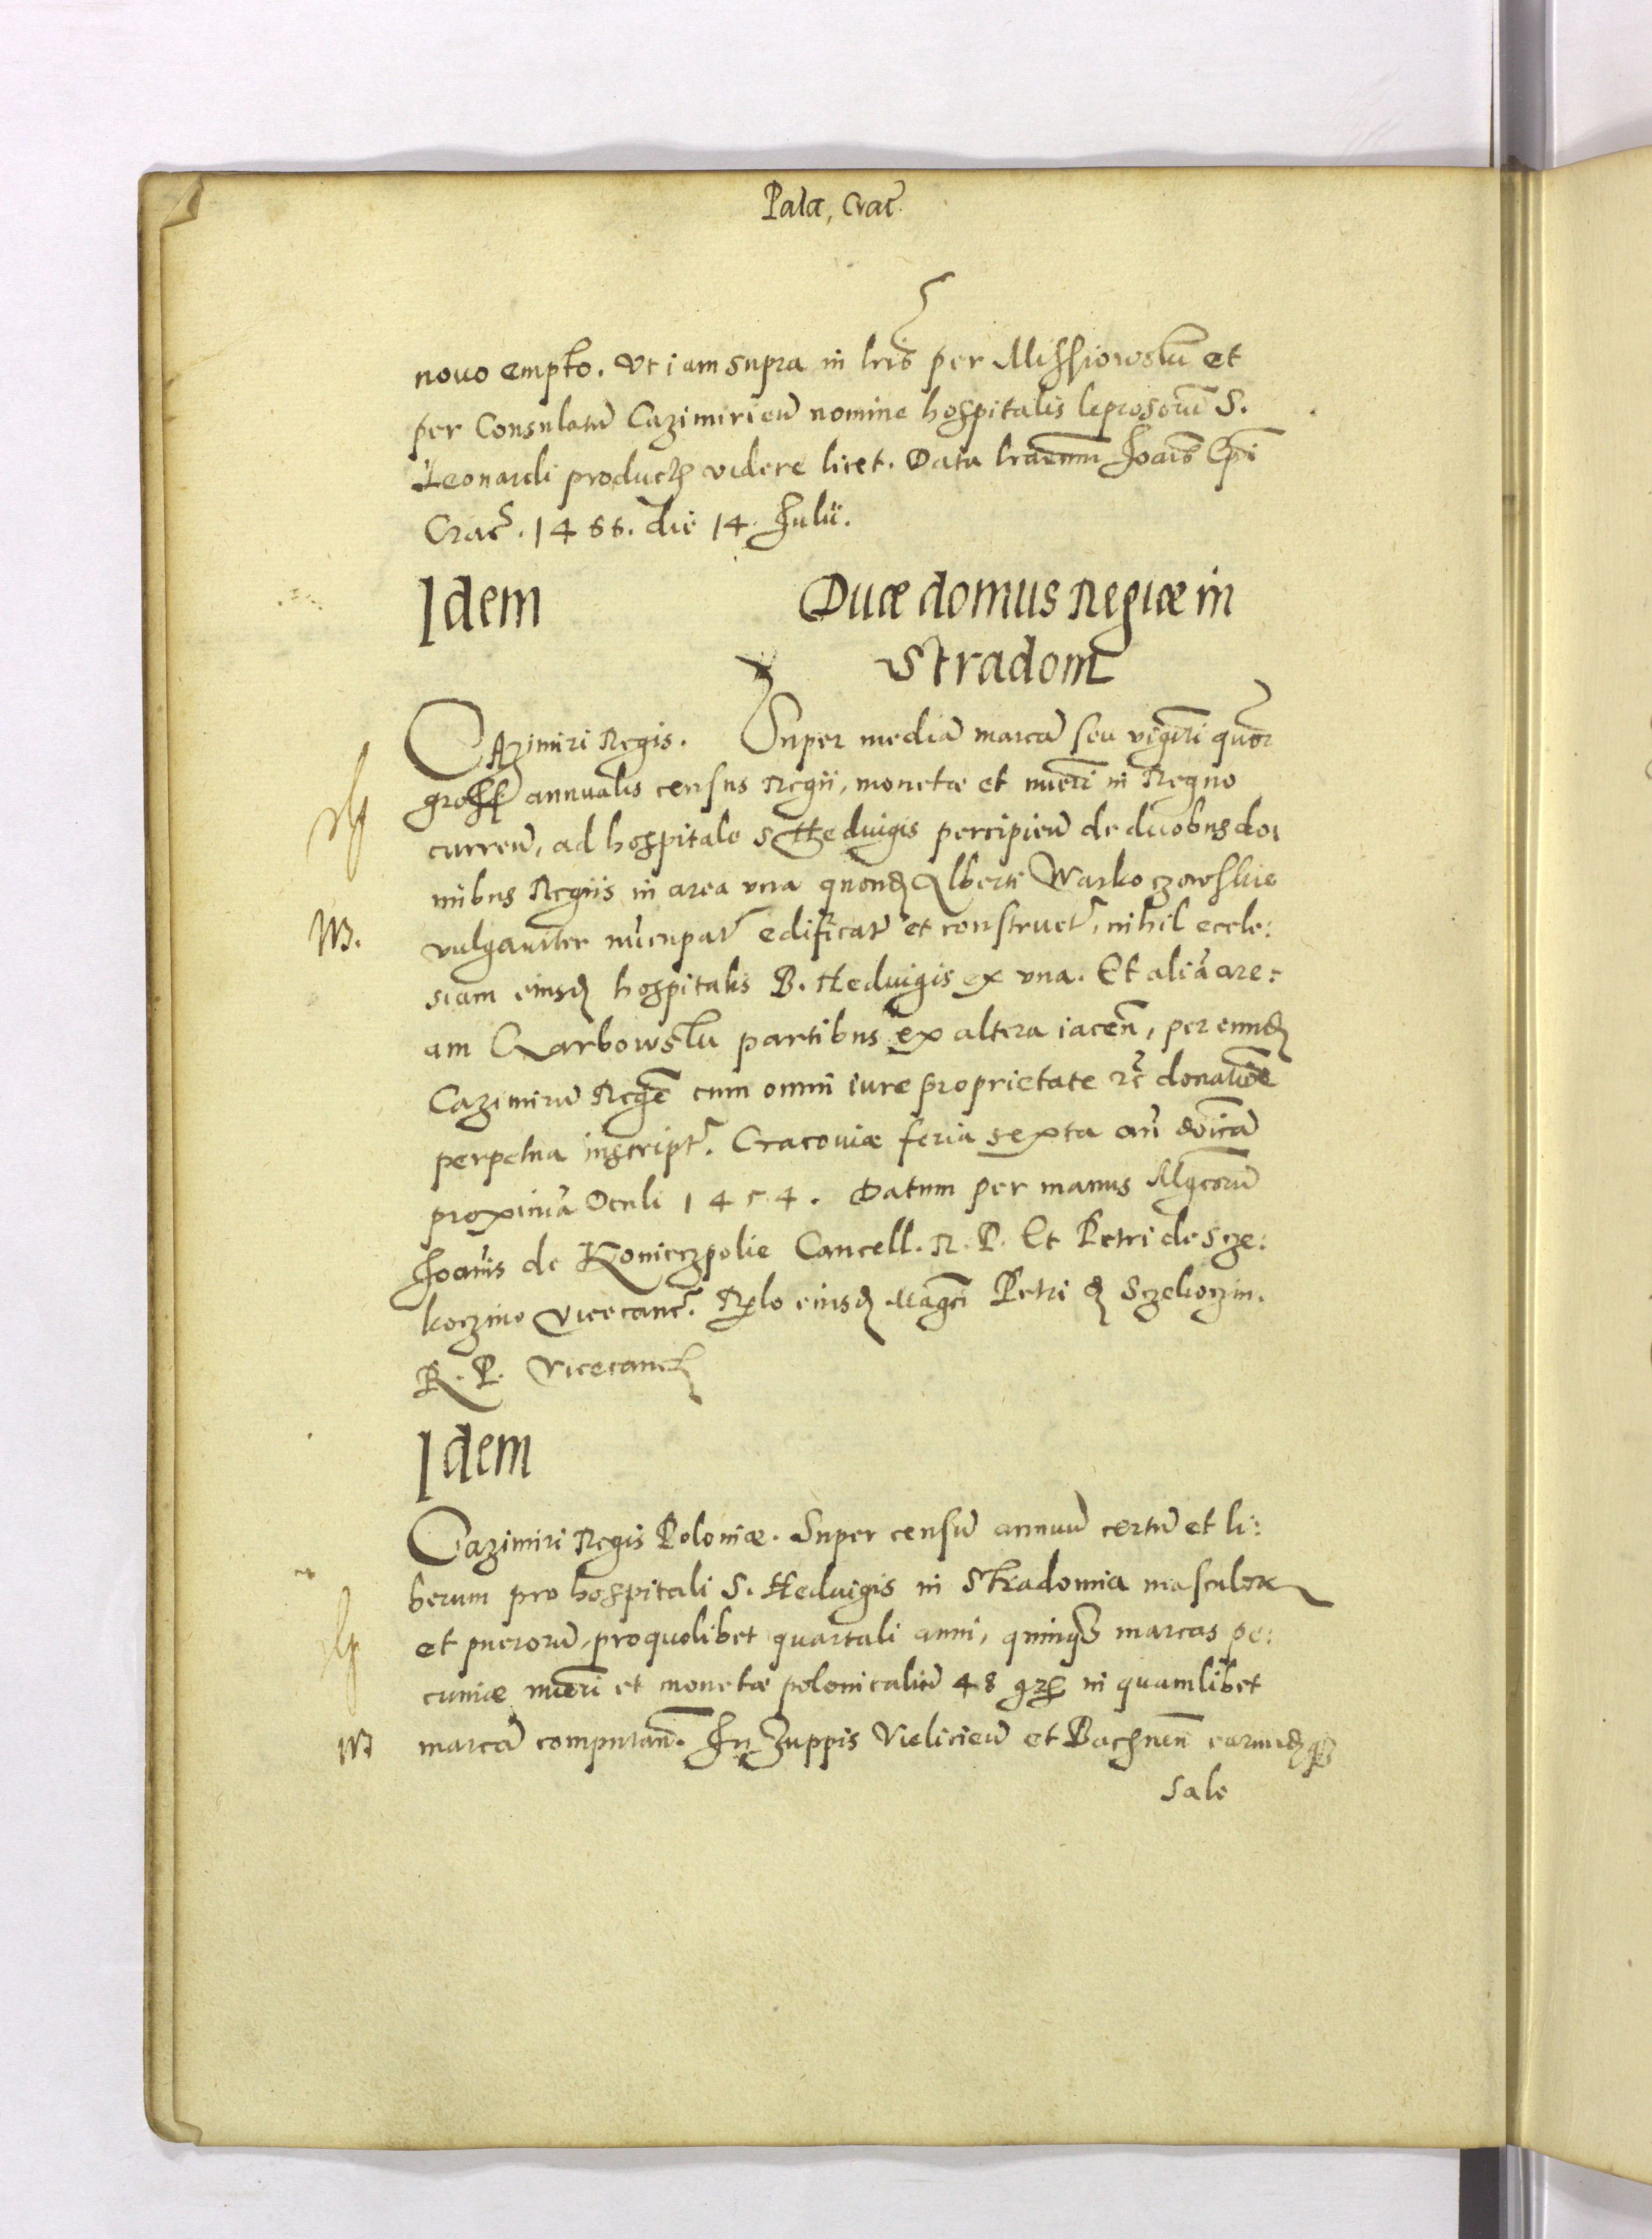 Pala, Crac̃
novo empto. Vt iam supra in lr̃is per Missiowskiũ et
per Consulatũ Cazimirieñ nomine hospitalis leprosorũ S.
Leonardi product videre licet. Data Joañis Ep̃i
Crac̃. 1466. die 14. Julii.
Idem
Duæ domus Regiæ in
Stradom
CAzimiri Regis. Super mediã marcã seu viginti quõr
gross annualis census Regii, monetæ et num̃eri in Regno
curreñ, ad hospitale S Heduigis percipieñ de duobus do
mibus Regiis in area vna quond Alberti Warkoczowskie
vulgariter nũcupat̃ edificat̃ et construct̃, nihil eccle:
siam eiusd hospitalis B. Heduigis ex vna. Et aliã are:
am Czarbowsku partibus ex altera iaceñ, per eund
Cazimirũ Regẽ cum omni iure proprietate etc̃ donatiõe
perpetua inscript̃. Cracoviæ feria sexta añ dõicã
proximã Oculi 1454. Datum per manus Mgcorũ
Joañis de Konieczpolie Cancell. R. P. Et Petri de Scze:
koczino vicecanc̃. Rlo eiusd Magc̃i Petri d Sczekoczin.
R. P. Vicecanc
Idem
Cazimiri Regis Poloniæ. Super censũ annuũ certũ et li:
berum pro hospitali S. Heduigis in Stradomia masculor
et puerorũ, pro quolibet quartali anni, quinq marcas pe:
cuniæ num̃eri et monetæ polonicaliũ 48 gr in quamlibet
marcã computañ. In Zuppis Vielicieñ et Bachneñ earund
Sale
W.
W